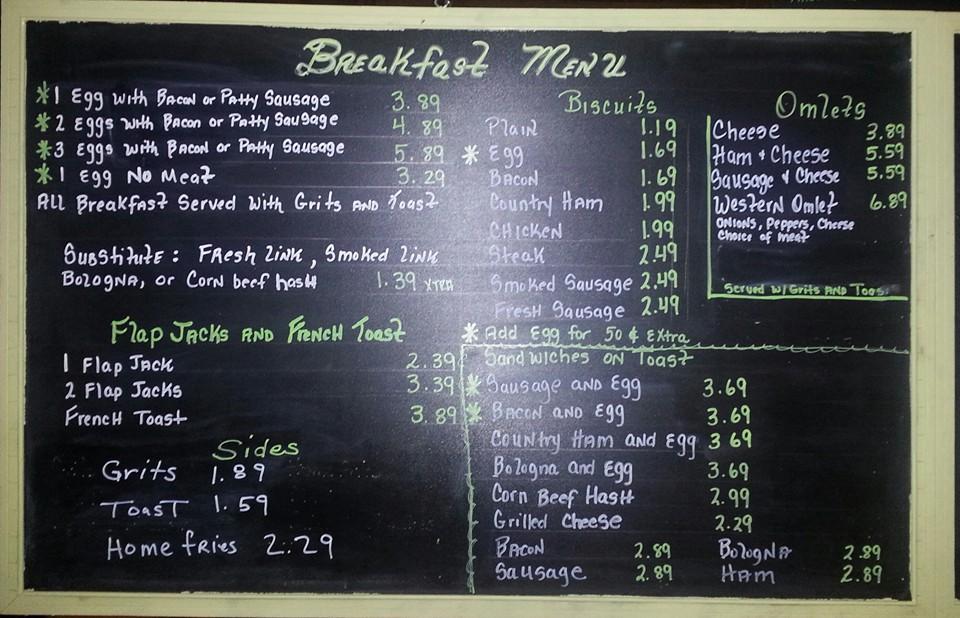 Breakfast Menu
*1 Egg with Bacon or Patty Sausage 3.89
*2 Eggs with Bacon or Patty Sausage 4.89
*3 Eggs with Bacon or Patty Sausage 5.89
*1 Egg No Meat 3.29
All Breakfast Served With Grits AND Toast
Substitute: Fresh Link, Smoked Link
Bologna, or Corn beef hash 1.39 xtra
Flap Jacks AND French Toast
1 Flap Jack 2.39
2 Flap Jacks 3.39
French Toast 3.89
Sides
Grits 1.89
Toast 1.59
Home fries 2.29
Biscuits
Plain 1.19
* Egg 1.69
Bacon 1.69
Country Ham 1.99
Chicken 1.99
Steak 2.49
Smoked Sausage 2.49
Fresh Sausage 2.49
* Add Egg for 50¢ Extra
Omlets
Cheese 3.89
Ham + Cheese 5.59
Sausage + Cheese 5.59
Western Omlet 6.89
Onions, Peppers, Cheese
Choice of meat
Served w/ Grits AND Toos
Sandwiches ON Toast
* Sausage AND Egg 3.69
* Bacon AND Egg 3.69
Country Ham and Egg 3 69
Bologna and Egg 3.69
Corn Beef Hash 2.99
Grilled Cheese 2.29
Bacon 2.89 Bologna 2.89
Sausage 2.89 Ham 2.89